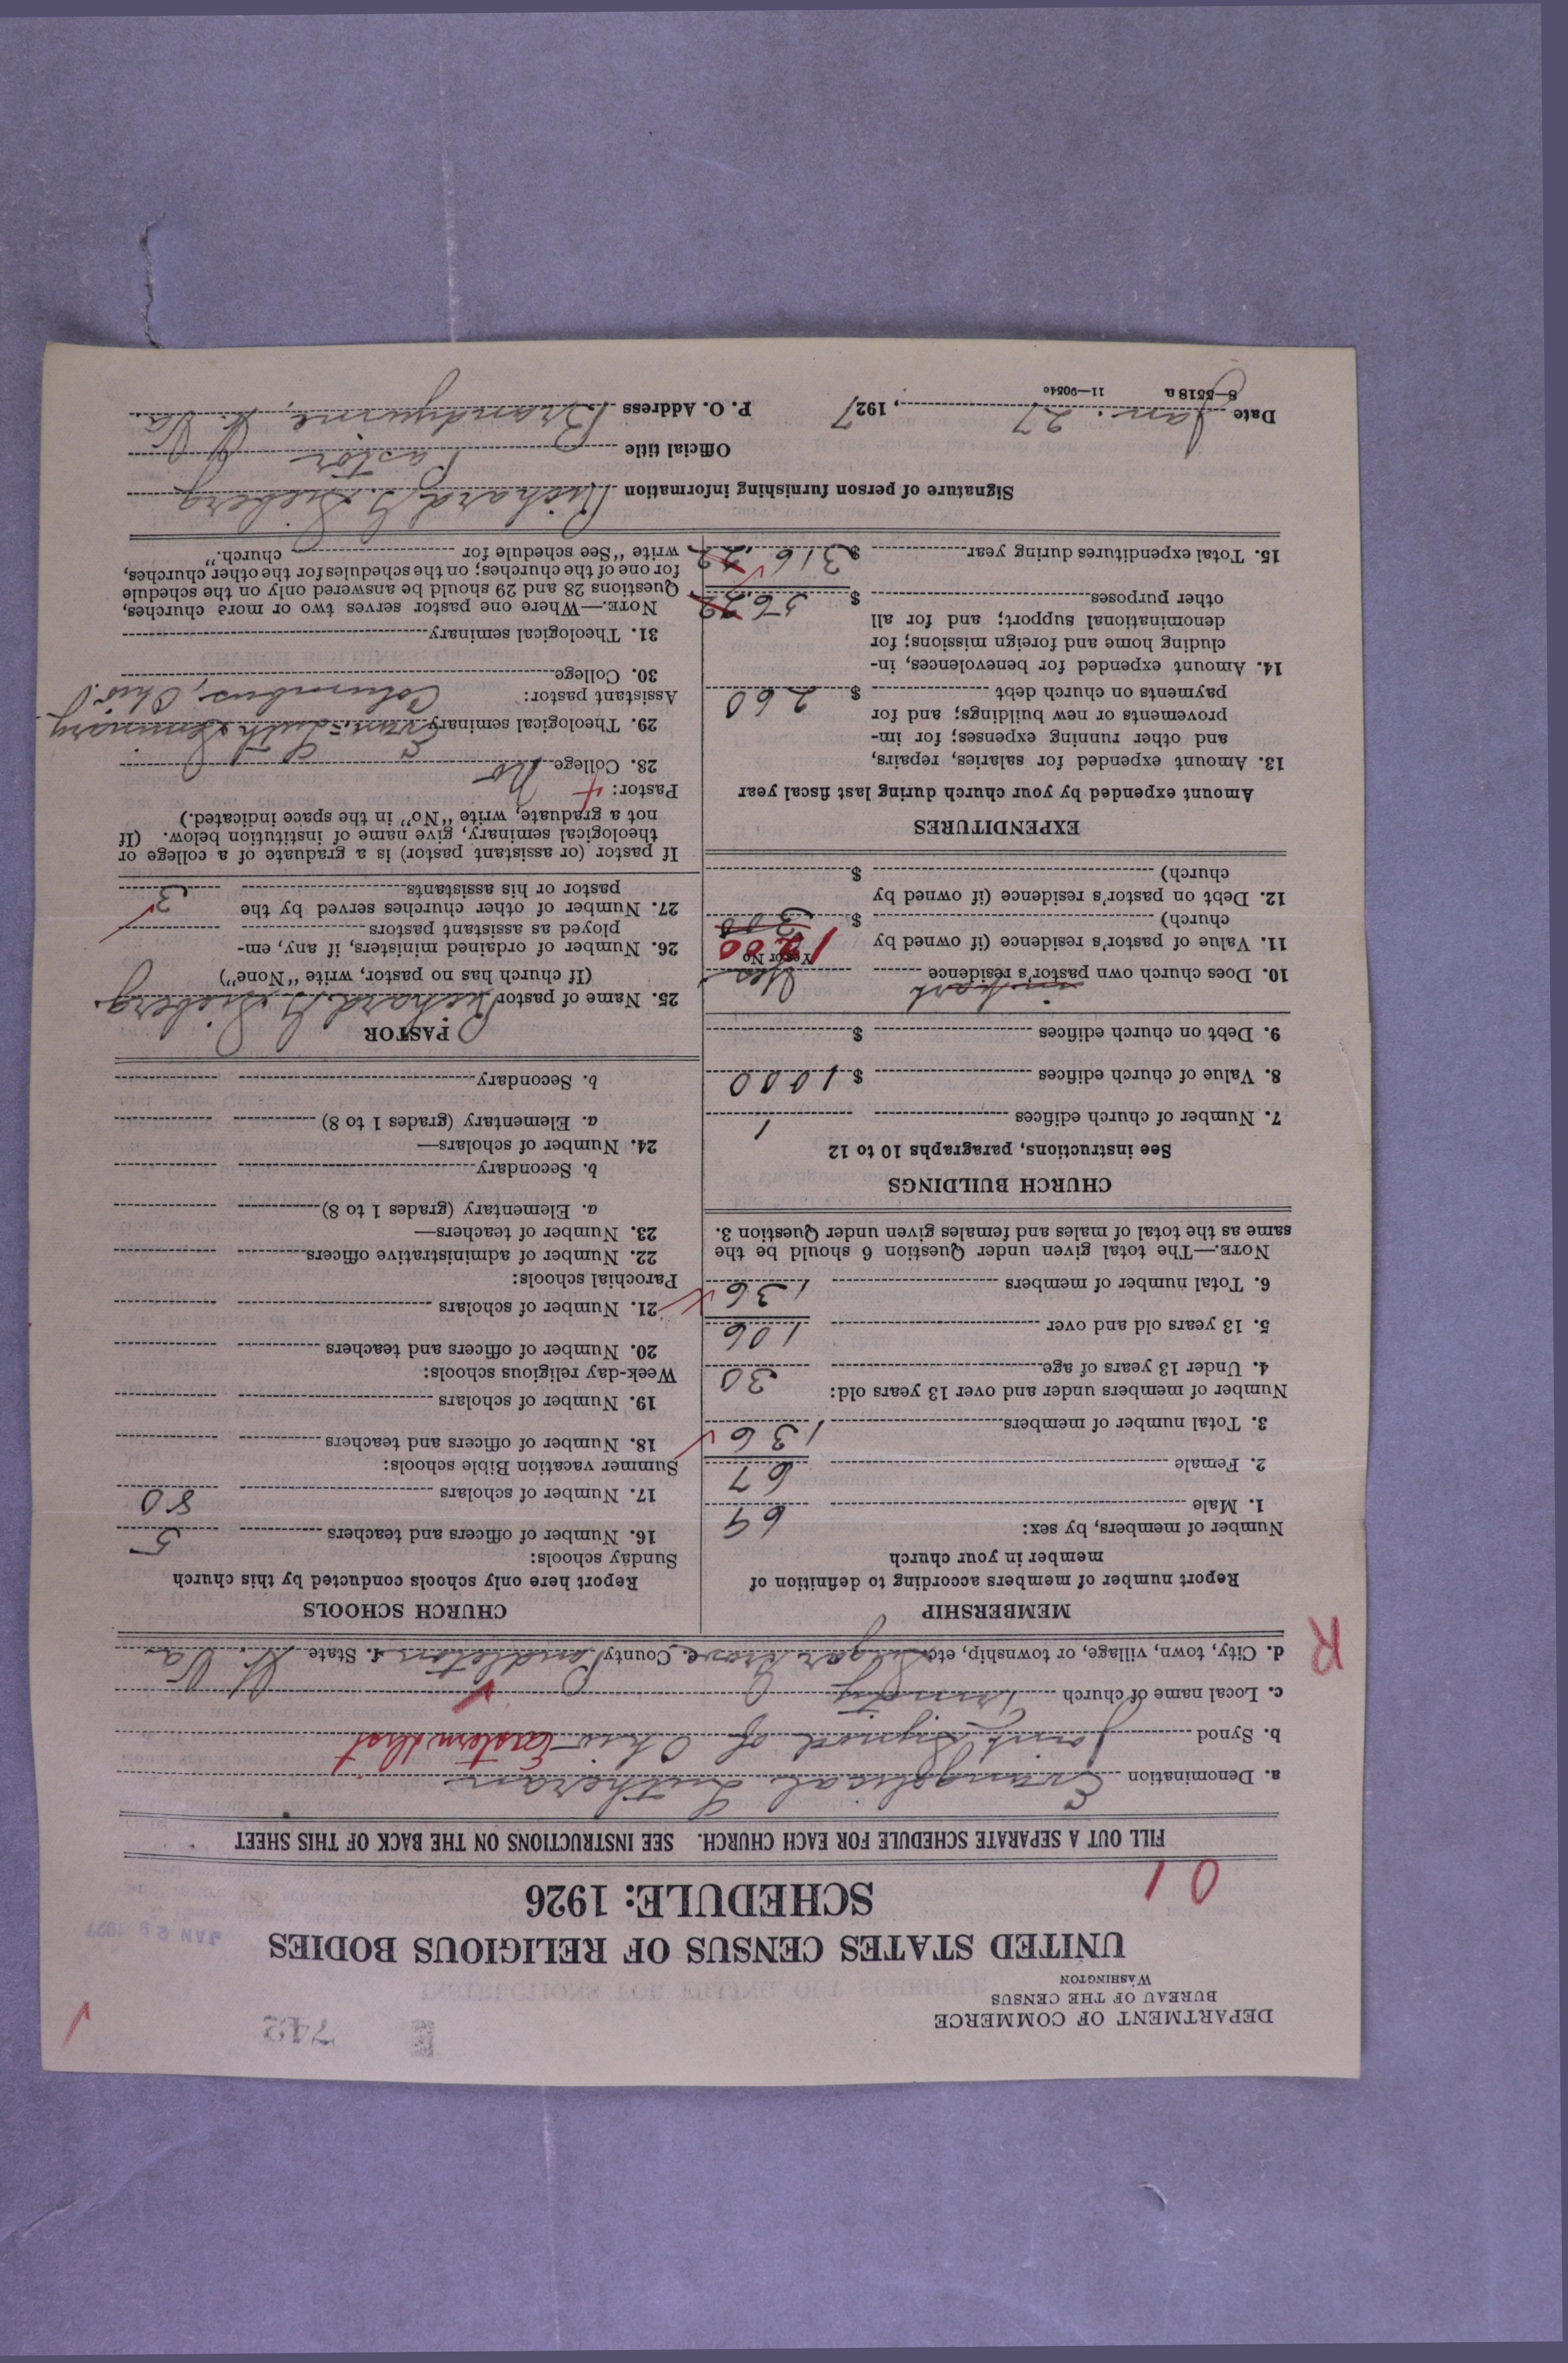 DEPARTMENT OF COMMERCE
BUREAU OF THE CENSUS
WASHINGTON
UNITED STATES CENSUS OF RELIGIOUS BODIES
SCHEDULE: 1926
01
JAN 29 1927
FILL OUT A SEPARATE SCHEDULE FOR EACH CHURCH. SEE INSTRUCTIONS ON THE BACK OF THIS SHEET
a. Denomination Evangelical Lutheran
b. Synod Joint Synod of Ohio Eastern dist
c. Local name of church Trinity
d. City, town, village, or township, etc. Sugar Grove e. County Pendleton f. State W. Va
R
MEMBERSHIP
Report number of members according to definition of
member in your church
Number of members, by sex:
1. Male 69
2. Female 67
3. Total number of members 136
Number of members under and over 13 years old:
4. Under 13 years of age 30
5. 13 years old and over 106
6. Total number of members 136
NOTE.—The total given under Question 6 should be the
same as the total of males and females given under Question 3.
CHURCH BUILDINGS
See instructions, paragraphs 10 to 12
7. Number of church edifices 1
8. Value of church edifices $ 1000
9. Debt on church edifices $
in part
10. Does church own pastor's residence Yes
Yes or No
11. Value of pastor's residence (if owned by
church) $ 300
12. Debt on pastor's residence (if owned by
church) $
EXPENDITURES
Amount expended by your church during last fiscal year
13. Amount expended for salaries, repairs,
and other running expenses; for im-
provements or new buildings; and for
payments on church debt $ 260
14. Amount expended for benevolences, in-
cluding home and foreign missions; for
denominational support; and for all
other purposes $ 56.22
15. Total expenditures during year $ 316.22
CHURCH SCHOOLS
Report here only schools conducted by this church
Sunday schools:
16. Number of officers and teachers 5
17. Number of scholars 80
Summer vacation Bible schools:
18. Number of officers and teachers
19. Number of scholars
Week-day religious schools:
20. Number of officers and teachers
21. Number of scholars
Parochial schools:
22. Number of administrative officers
23. Number of teachers—
a. Elementary (grades 1 to 8)
b. Secondary
24. Number of scholars—
a. Elementary (grades 1 to 8)
b. Secondary
PASTOR
25. Name of pastor Richard G. Sieberg
(If church has no pastor, write "None")
26. Number of ordained ministers, if any, em-
ployed as assistant pastors
27. Number of other churches served by the
pastor or his assistants 3
If pastor (or assistant pastor) is a graduate of a college or
theological seminary, give name of institution below. (If
not a graduate, write "No" in the space indicated.)
Pastor:
28. College No
29. Theological seminary Evan. Luth. Seminary
Columbus, Ohio
Assistant pastor:
30. College
31. Theological seminary
NOTE.—Where one pastor serves two or more churches,
Questions 28 and 29 should be answered only on the schedule
for one of the churches; on the schedules for the other churches,
write "See schedule for church."
Signature of person furnishing information Richard G. Sieberg
Official title Pastor
Date Jan. 27, 1927 P. O. Address Brandywine, W. Va.
8—5518a 11—90540